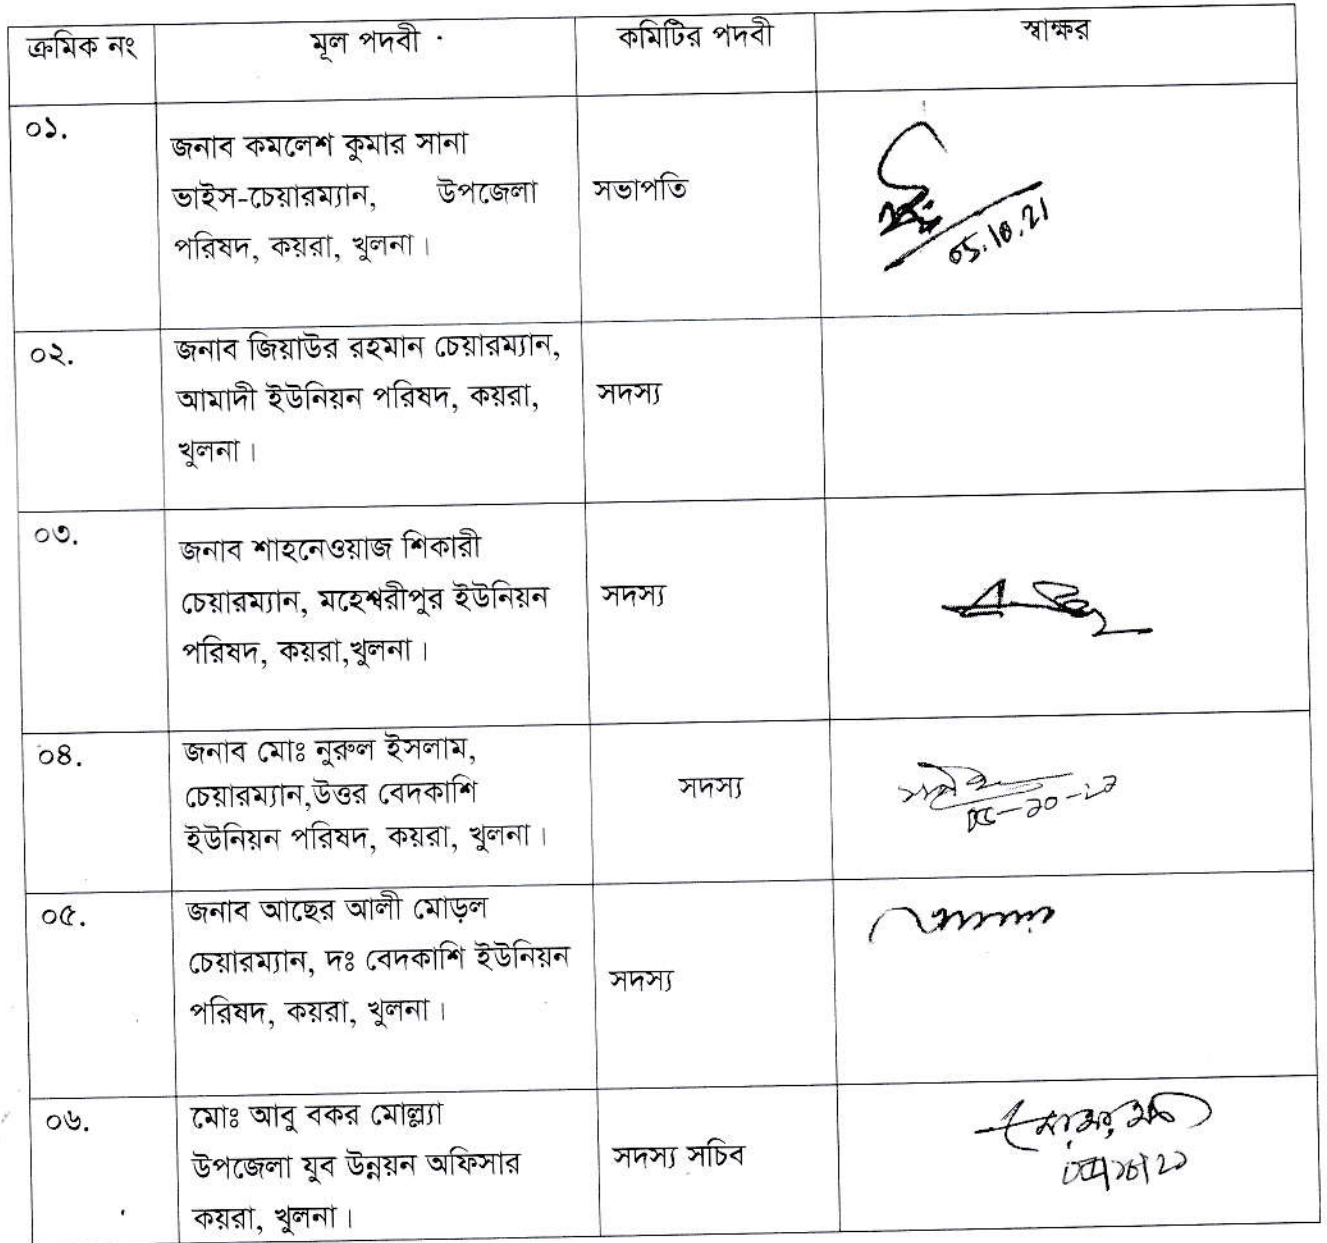 ক্রমিক নং মূল পদবী কমিটির পদবী স্বাক্ষর
০১.
জনাব কমলেশ কুমার সানা
ভাইস-চেয়ারম্যান, উপজেলা
পরিষদ, কয়রা, খুলনা।
সভাপতি
05.10.21
০২.
জনাব জিয়াউর রহমান চেয়ারম্যান,
আমাদী ইউনিয়ন পরিষদ, কয়রা,
খুলনা।
সদস্য
০৩.
জনাব শাহনেওয়াজ শিকারী
চেয়ারম্যান, মহেশ্বরীপুর ইউনিয়ন
পরিষদ, কয়রা,খুলনা।
সদস্য
০৪.
জনাব মোঃ নুরুল ইসলাম,
চেয়ারম্যান,উত্তর বেদকাশি
ইউনিয়ন পরিষদ, কয়রা, খুলনা।
সদস্য
০৫.
জনাব আছের আলী মোড়ল
চেয়ারম্যান, দঃ বেদকাশি ইউনিয়ন
পরিষদ, কয়রা, খুলনা।
সদস্য
০৬.
মোঃ আবু বকর মোল্ল্যা
উপজেলা যুব উন্নয়ন অফিসার
কয়রা, খুলনা।
সদস্য সচিব